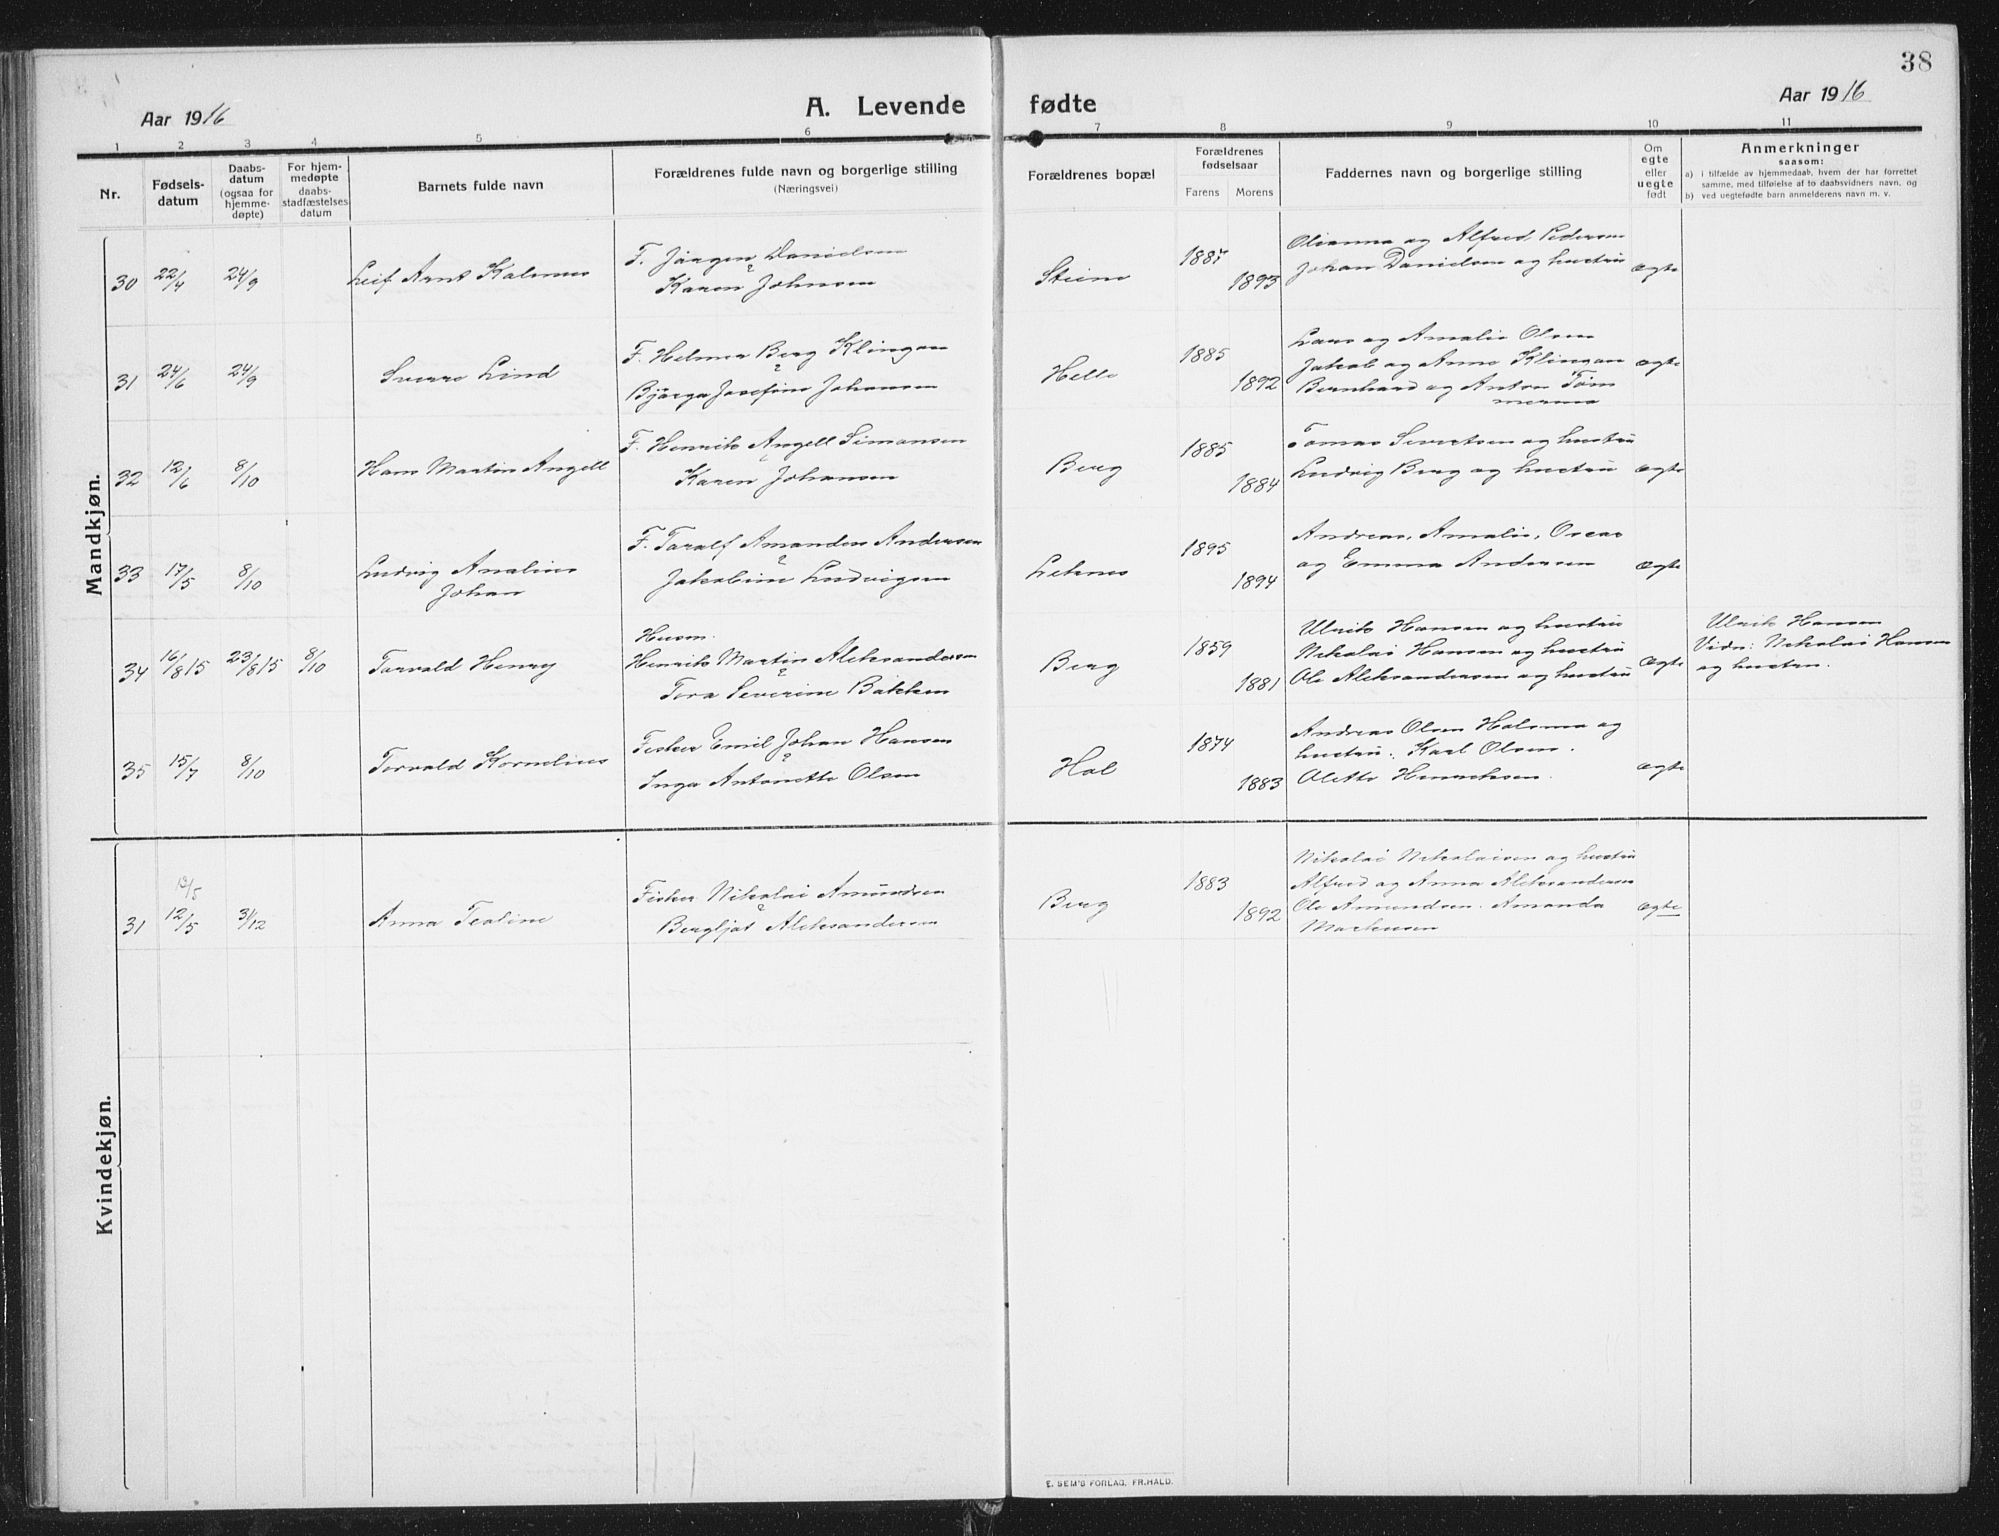 38
Aar 1916
A. Levende fødte
Aar 1916
1 2 3 4 5 6 7 8 9 10 11
Nr.
Fødselsdatum
Daabsdatum (ogsaa for hjemmedøpte)
For hjemmedøpte daabsstadfæstelses datum
Barnets fulde navn
Forældrenes fulde navn og borgerlige stilling
(Næringsvei)
Forældrenes bopæl
Forældrenes fødselsaar
Farens Morens
Faddernes navn og borgerlige stilling
Om egte eller uegte født
Anmerkninger
saasom:
a) i tilfælde av hjemmedaab, hvem der har forrettet
samme, med tilføielse af to daabsvidners navn, og
b) ved uegtefødte barn anmelderens navn m. v.
Mandkjøn.
30 22/4 24/9 Leif Arnt
F. Jørgen Danielsen
&
Karen Johnsen
Steine
1887
1893
Olianna og Alfred Pedersen
Johan Danielsen og hustru
ægte
31 24/6 24/9 Sverre Lind
F. Helmer Berg Klingan
&
Bjørga Josefine Johansen
Helle
1885
1892
Lars og Amalie Olsen
Jakob og Anna Klingan
Bernhard og Anton Tøm
mernes
ægte
32 12/6 8/10 Hans Martin Angell
F. Henrik Angell Simonsen
&
Karen Johansen
Berg
1885
1884
Tomas Sivertsen og hustru
Ludvig Berg og hustru
ægte
33 17/5 8/10 Ludvig Analius
Johan
F. Toralf Amandus Andersen
&
Jakobine Ludvigsen
Leknes
1895
1894
Andreas, Amalie, Oscar
og Emma Andersen
ægte
34 16/8 15 23/8 15 8/10 Torvald Henry
Husm.
Henrik Martin Aleksandersen
&
Tora Severine Bakken
Berg
1859
1881
Ulrik Hansen og hustru
Nikolai Hansen og hustru
Ole Aleksandersen og hustru
ægte
Ulrik Hansen
Vidn: Nikolai Hansen
og hustru.
35 15/7 8/10 Torvald Kornelius
Fisker Emil Johan Hansen
&
Inga Antonette Olsen
Hol
1874
1883
Andreas Olsen Holsmo og
hustru. Karl Olsen.
Olette Henriksen.
ægte
Kvindekjøn.
31 12/5 3/12 Anna Tealine
Fisker Nikolai Amundsen
&
Bergljot Aleksandersen
Berg
1883
1892
Nikolai Nikolaisen og hustru
Alfred og Anna Aleksandersen
Ole Amundsen. Amanda
Markusen
ægte
E. SEM'S FORLAG, FR.HALD.